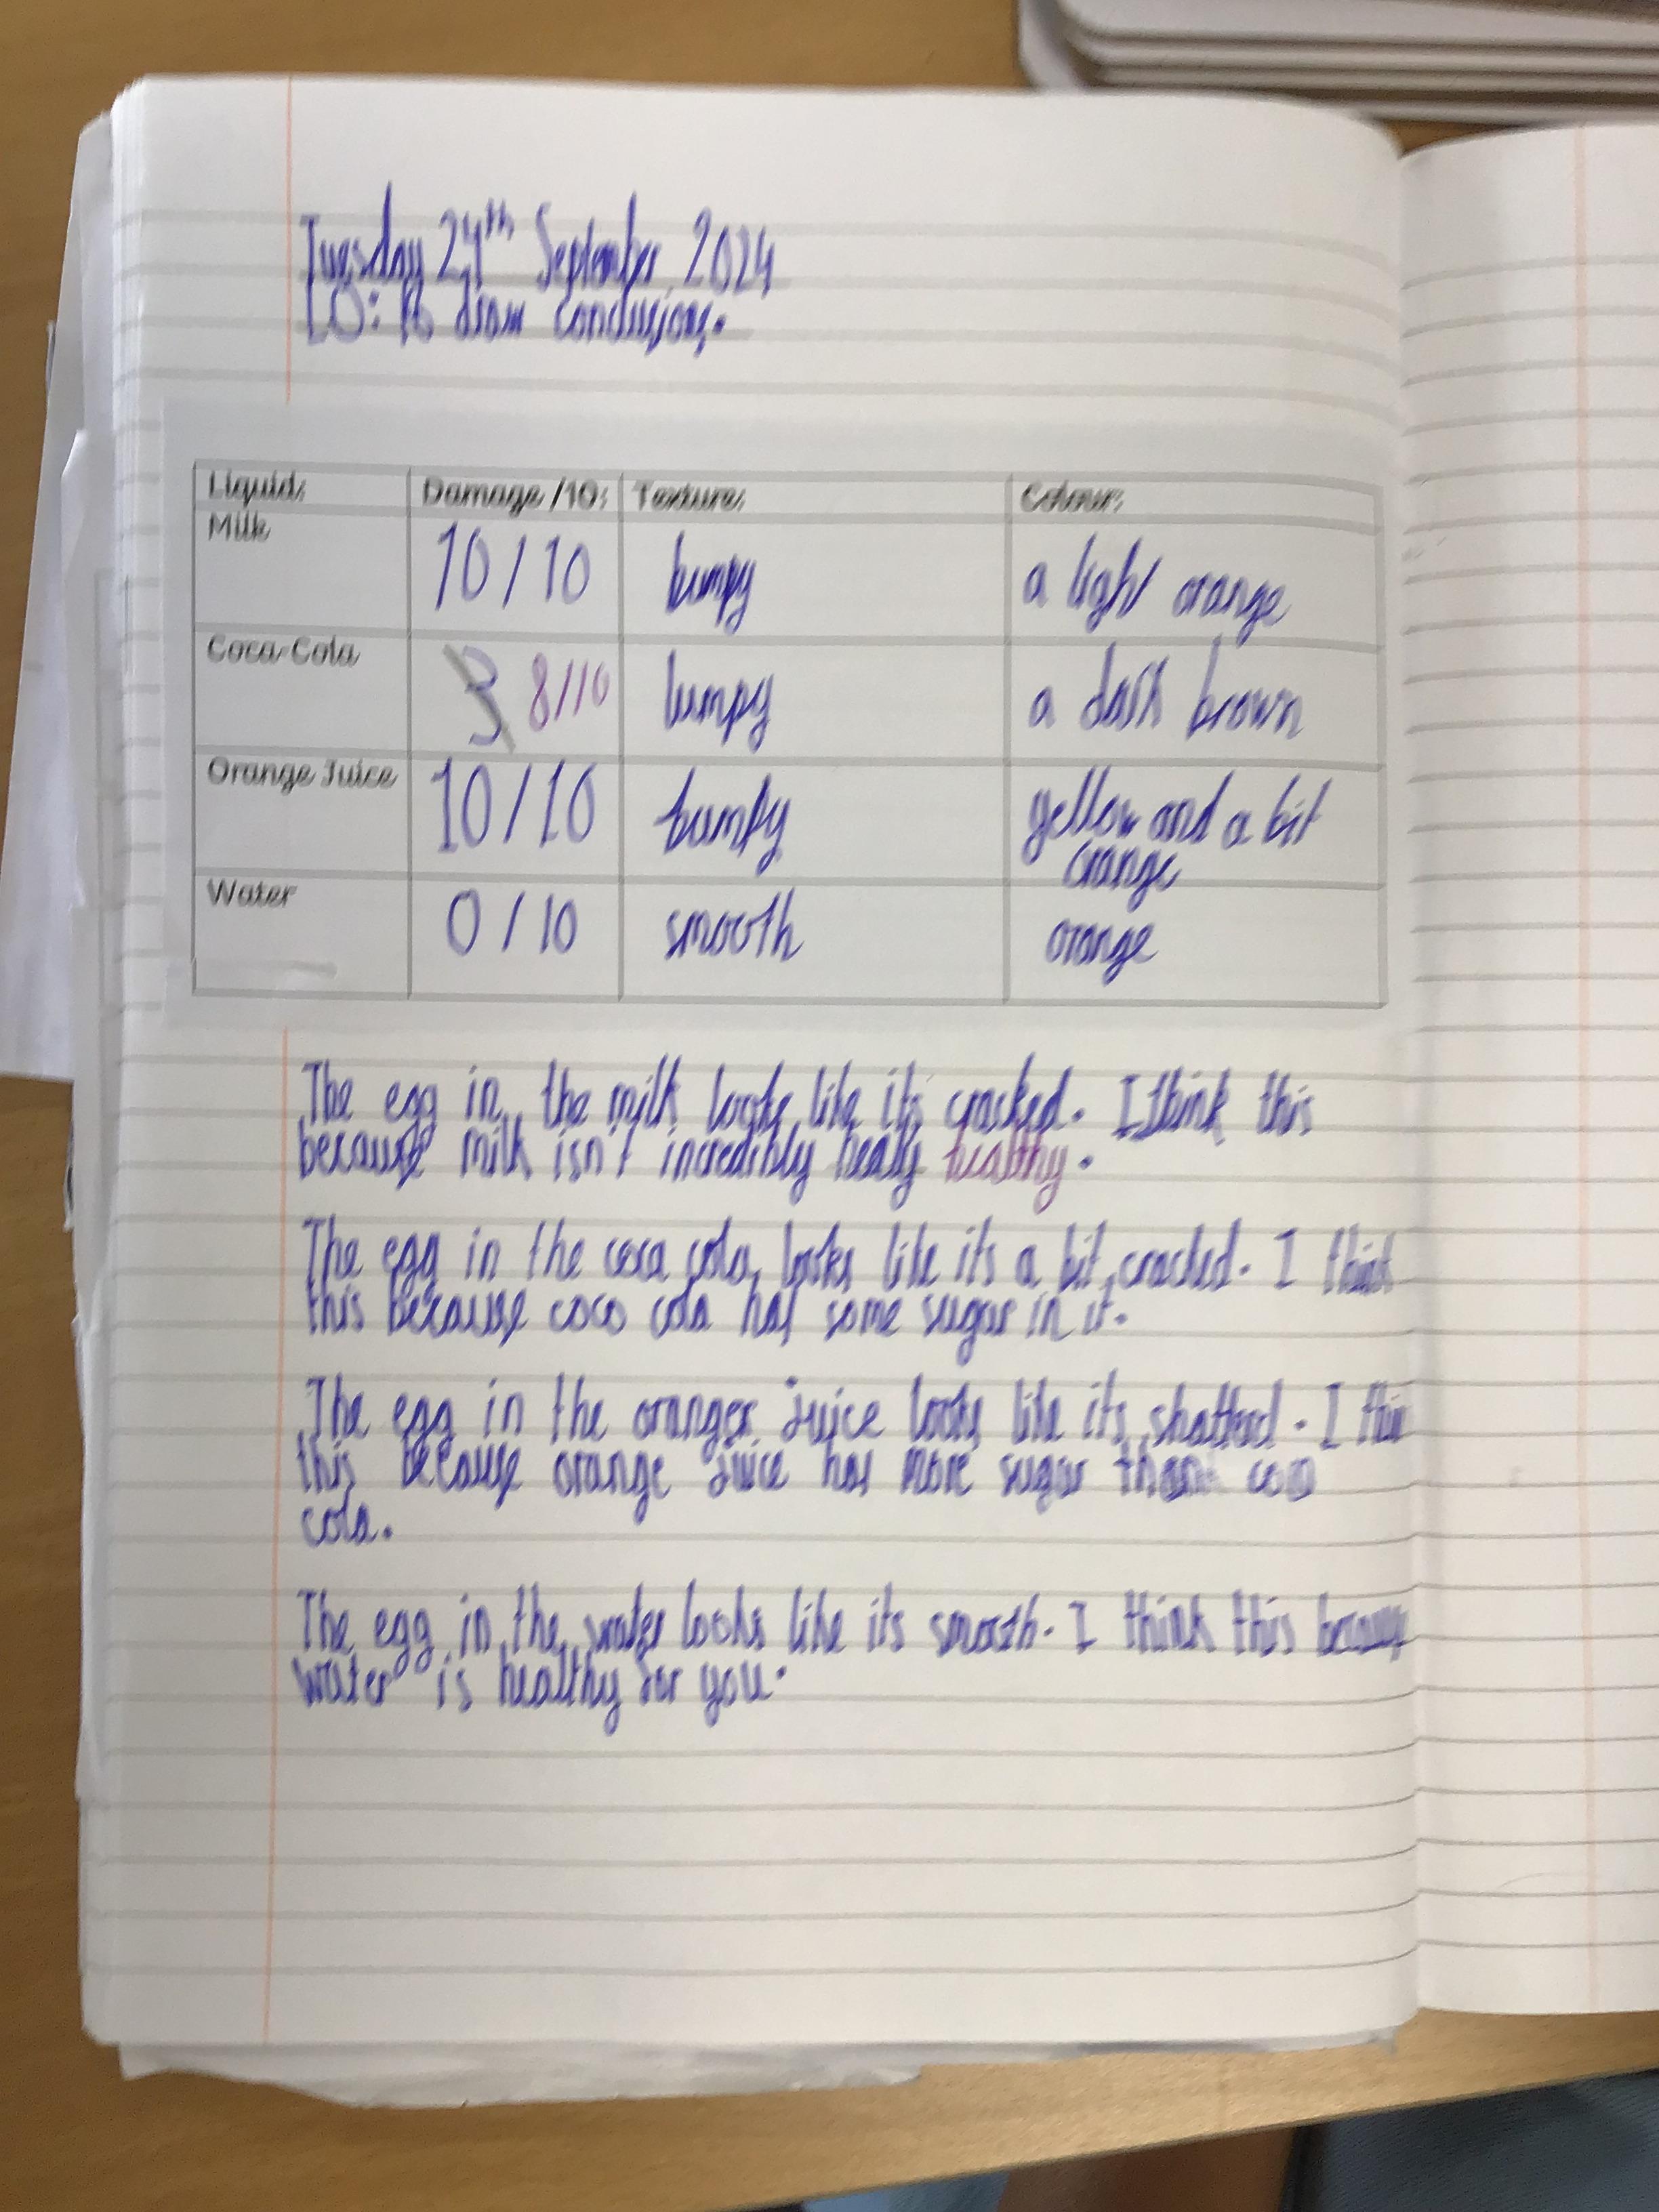 Tuesday 24th September 2024
LO: to draw conclusions.
Liquid: Damage /10: Texture: Colour:
Milk 10/10 bumpy a light orange
Coca-Cola 3 8/10 lumpy a dark brown
Orange Juice 10/10 bumpy yellow and a bit
orange
Water 0/10 smooth orange
The egg in the milk looks like its cracked. I think this
because milk isn't incredibly healy healthy.
The egg in the coca cola, looks like its a bit cracked. I think
this because coco cola has some sugar in it.
The egg in the oranger juice looks like its shatterd. I thin
this because orange juice has more sugar than coco
cola.
The egg in the water looks like its smooth. I think this because
water is healthy for you.